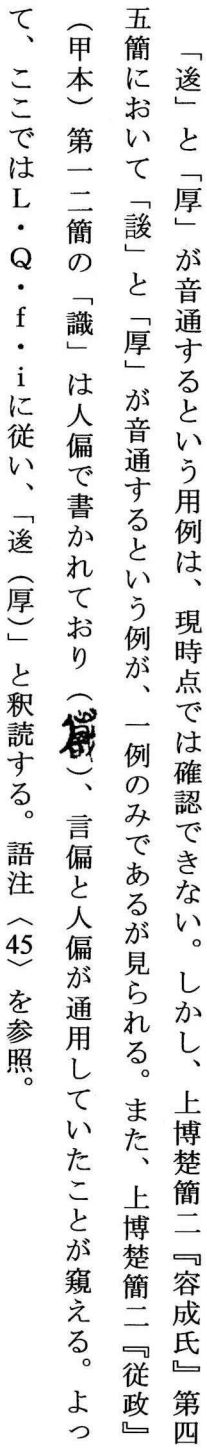 「逡」と「厚」が音通するという用例は、現時点では確認できない。しかし、上博楚簡二『容成氏』第四
五簡において「諼」と「厚」が音通するという例が、一例のみであるが見られる。また、上博楚簡二『従政』
（甲本）第一二簡の「識」は人偏で書かれており（）、言偏と人偏が通用していたことが窺える。よっ
て、ここではL・Q・f・iに従い、「逡（厚）」と釈読する。語注〈45〉を参照。